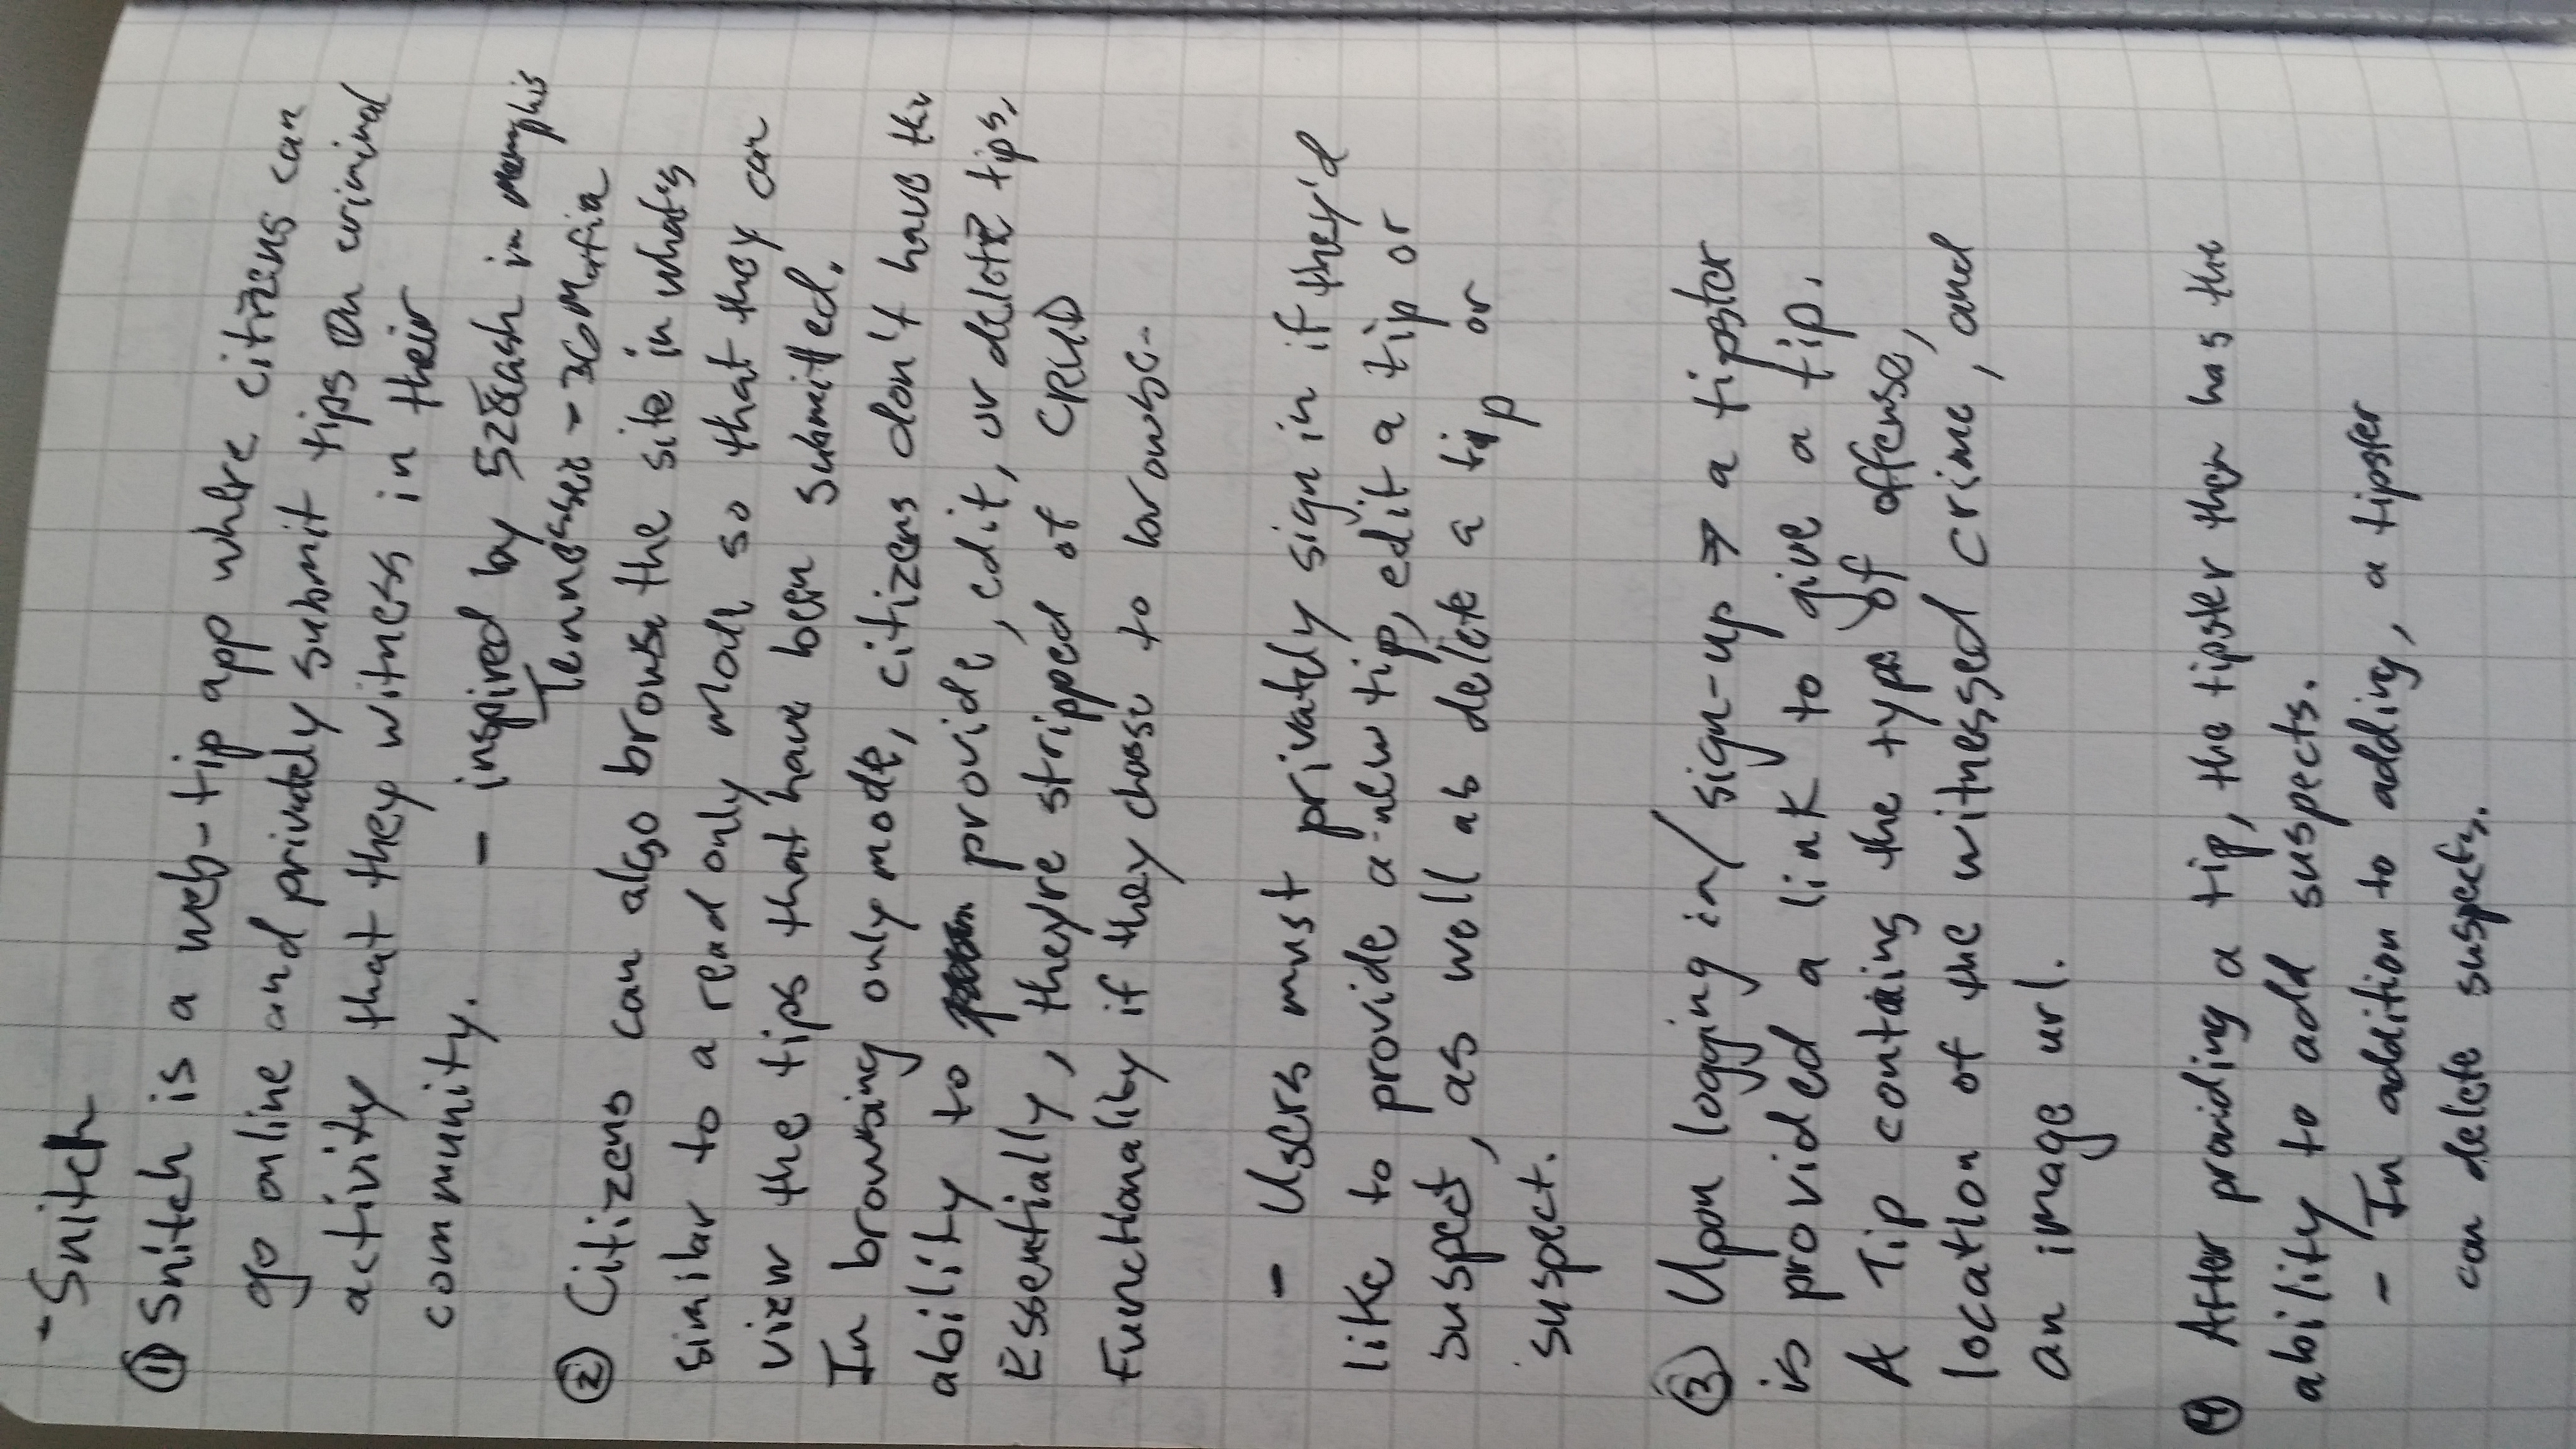 - Snitch
① Snitch is a web-tip app where citizens can
go online and privately submit tips on criminal
activity that they witness in their
community.
- inspired by 528cash in Memphis
Tennessee - 36 Mafia
② Citizens can also browse the site in what's
similar to a read only mode so that they can
view the tips that have been submitted.
In browsing only mode, citizens don't have the
ability to provide, edit, or delete tips.
Essentially, they're stripped of CRUD
Functionality if they choose to browse-
- Users must privately sign in if they'd
like to provide a new tip, edit a tip or
suspect, as well as delete a tip or
suspect.
③ Upon logging in/sign-up → a tipster
is provided a link to give a tip.
A Tip contains the type of offense,
location of the witnessed crime, and
an image url.
④ After providing a tip, the tipster then has the
ability to add suspects.
- In addition to adding, a tipster
can delete suspects.